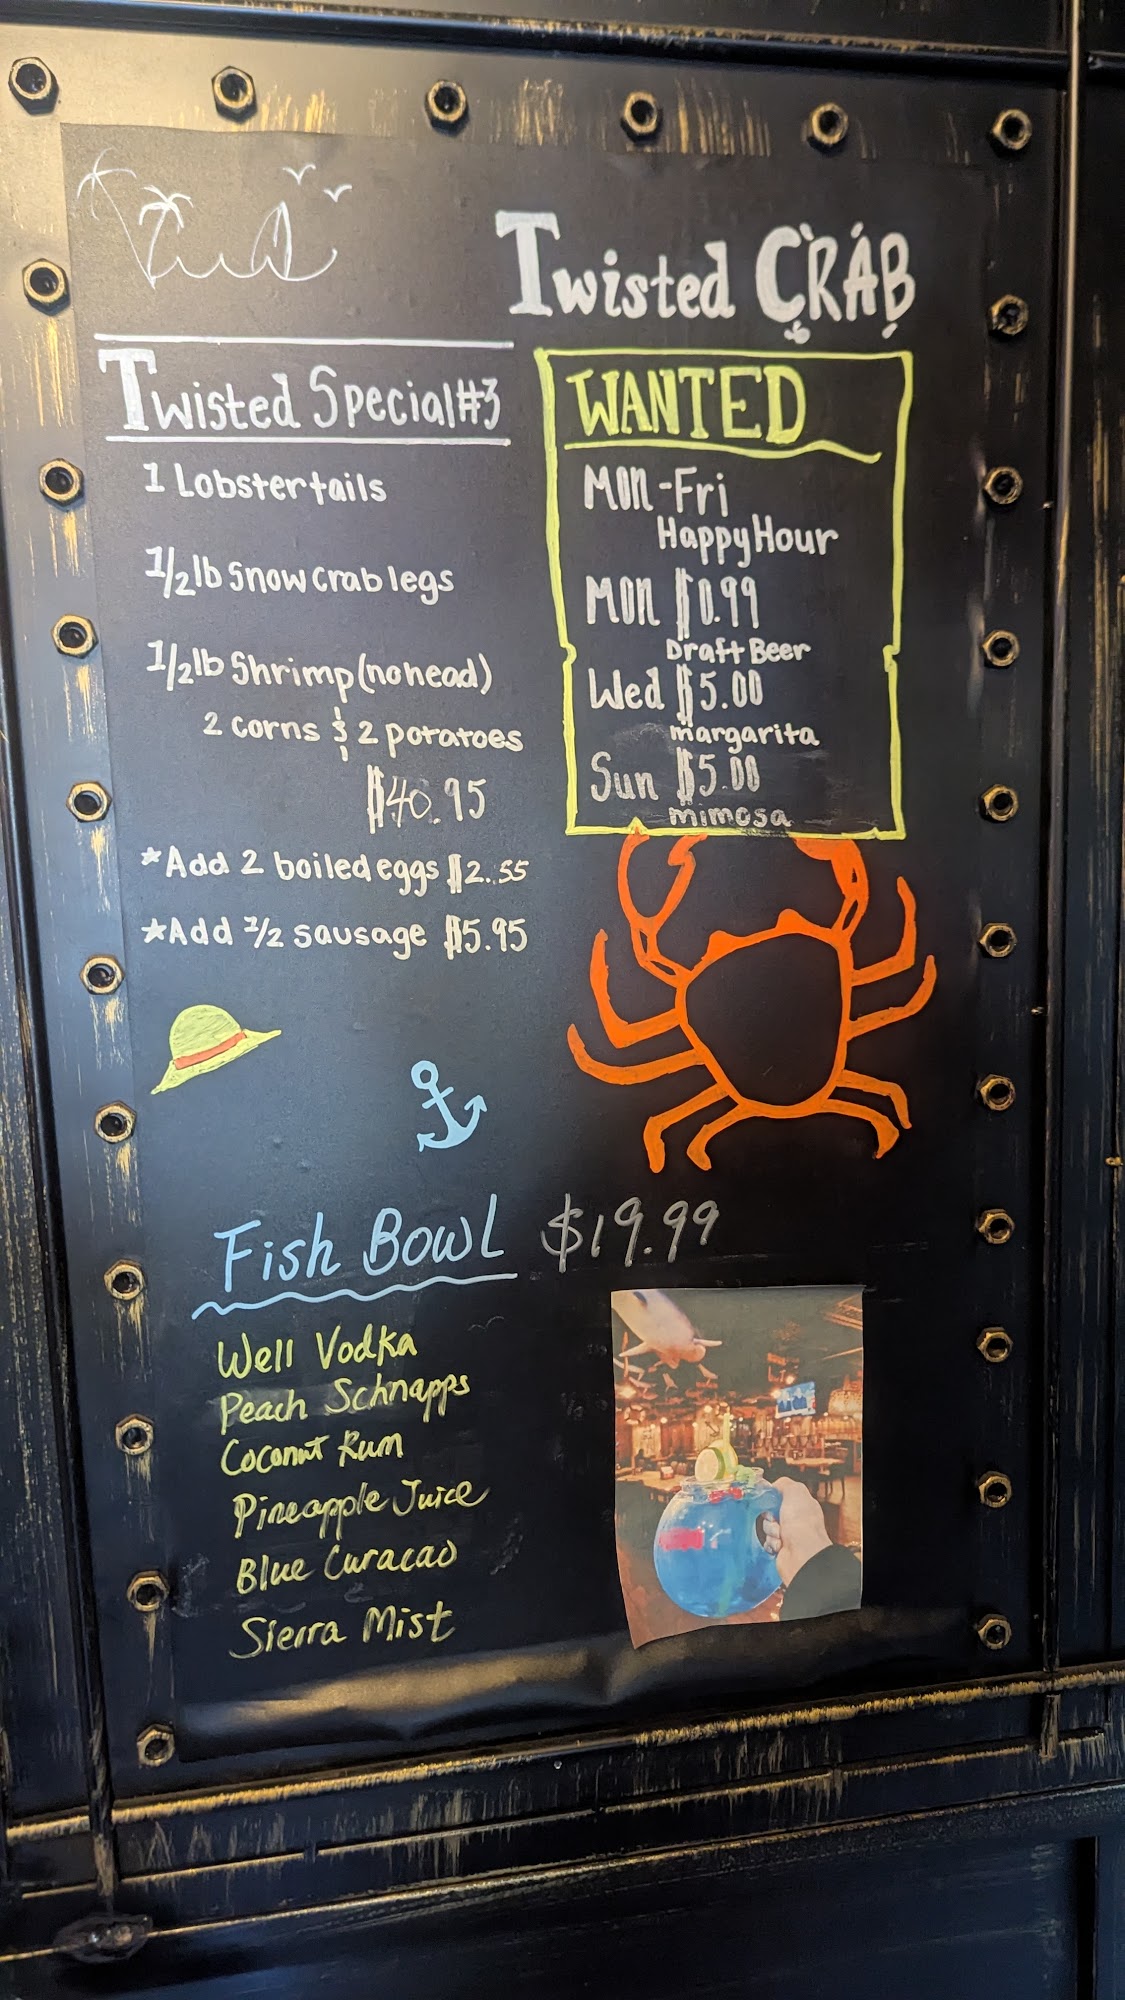 Twisted CRAB
Twisted Special #3
1 Lobster tails
1/2 lb Snow crab legs
1/2 lb Shrimp (no head)
2 corns & 2 potatoes
$40.95
*Add 2 boiled eggs $2.55
*Add 1/2 sausage $5.95
WANTED
MON-Fri
Happy Hour
MON $0.99
Draft Beer
Wed $5.00
margarita
Sun $5.00
mimosa
Fish Bowl $19.99
Well Vodka
Peach Schnapps
Coconut Rum
Pineapple Juice
Blue Curacao
Sierra Mist